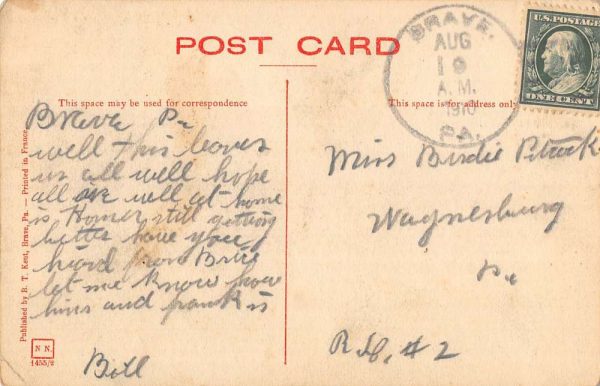 POST CARD
U.S. POSTAGE
ONE CENT
BRAVE,
AUG
19
A.M.
1910
PA.
This space may be used for correspondence
This space is for address only
Brave Pa
well this leaves
us all well hope
all are well at home
is Homer still getting
better have you
heard from Brice
let me know how
hins and frank is
Bill
Miss Birdie
Waynesburg
Pa
R.D. # 2
Published by R. T. Kent, Brave, Pa. — Printed in France
N N.
1455/2